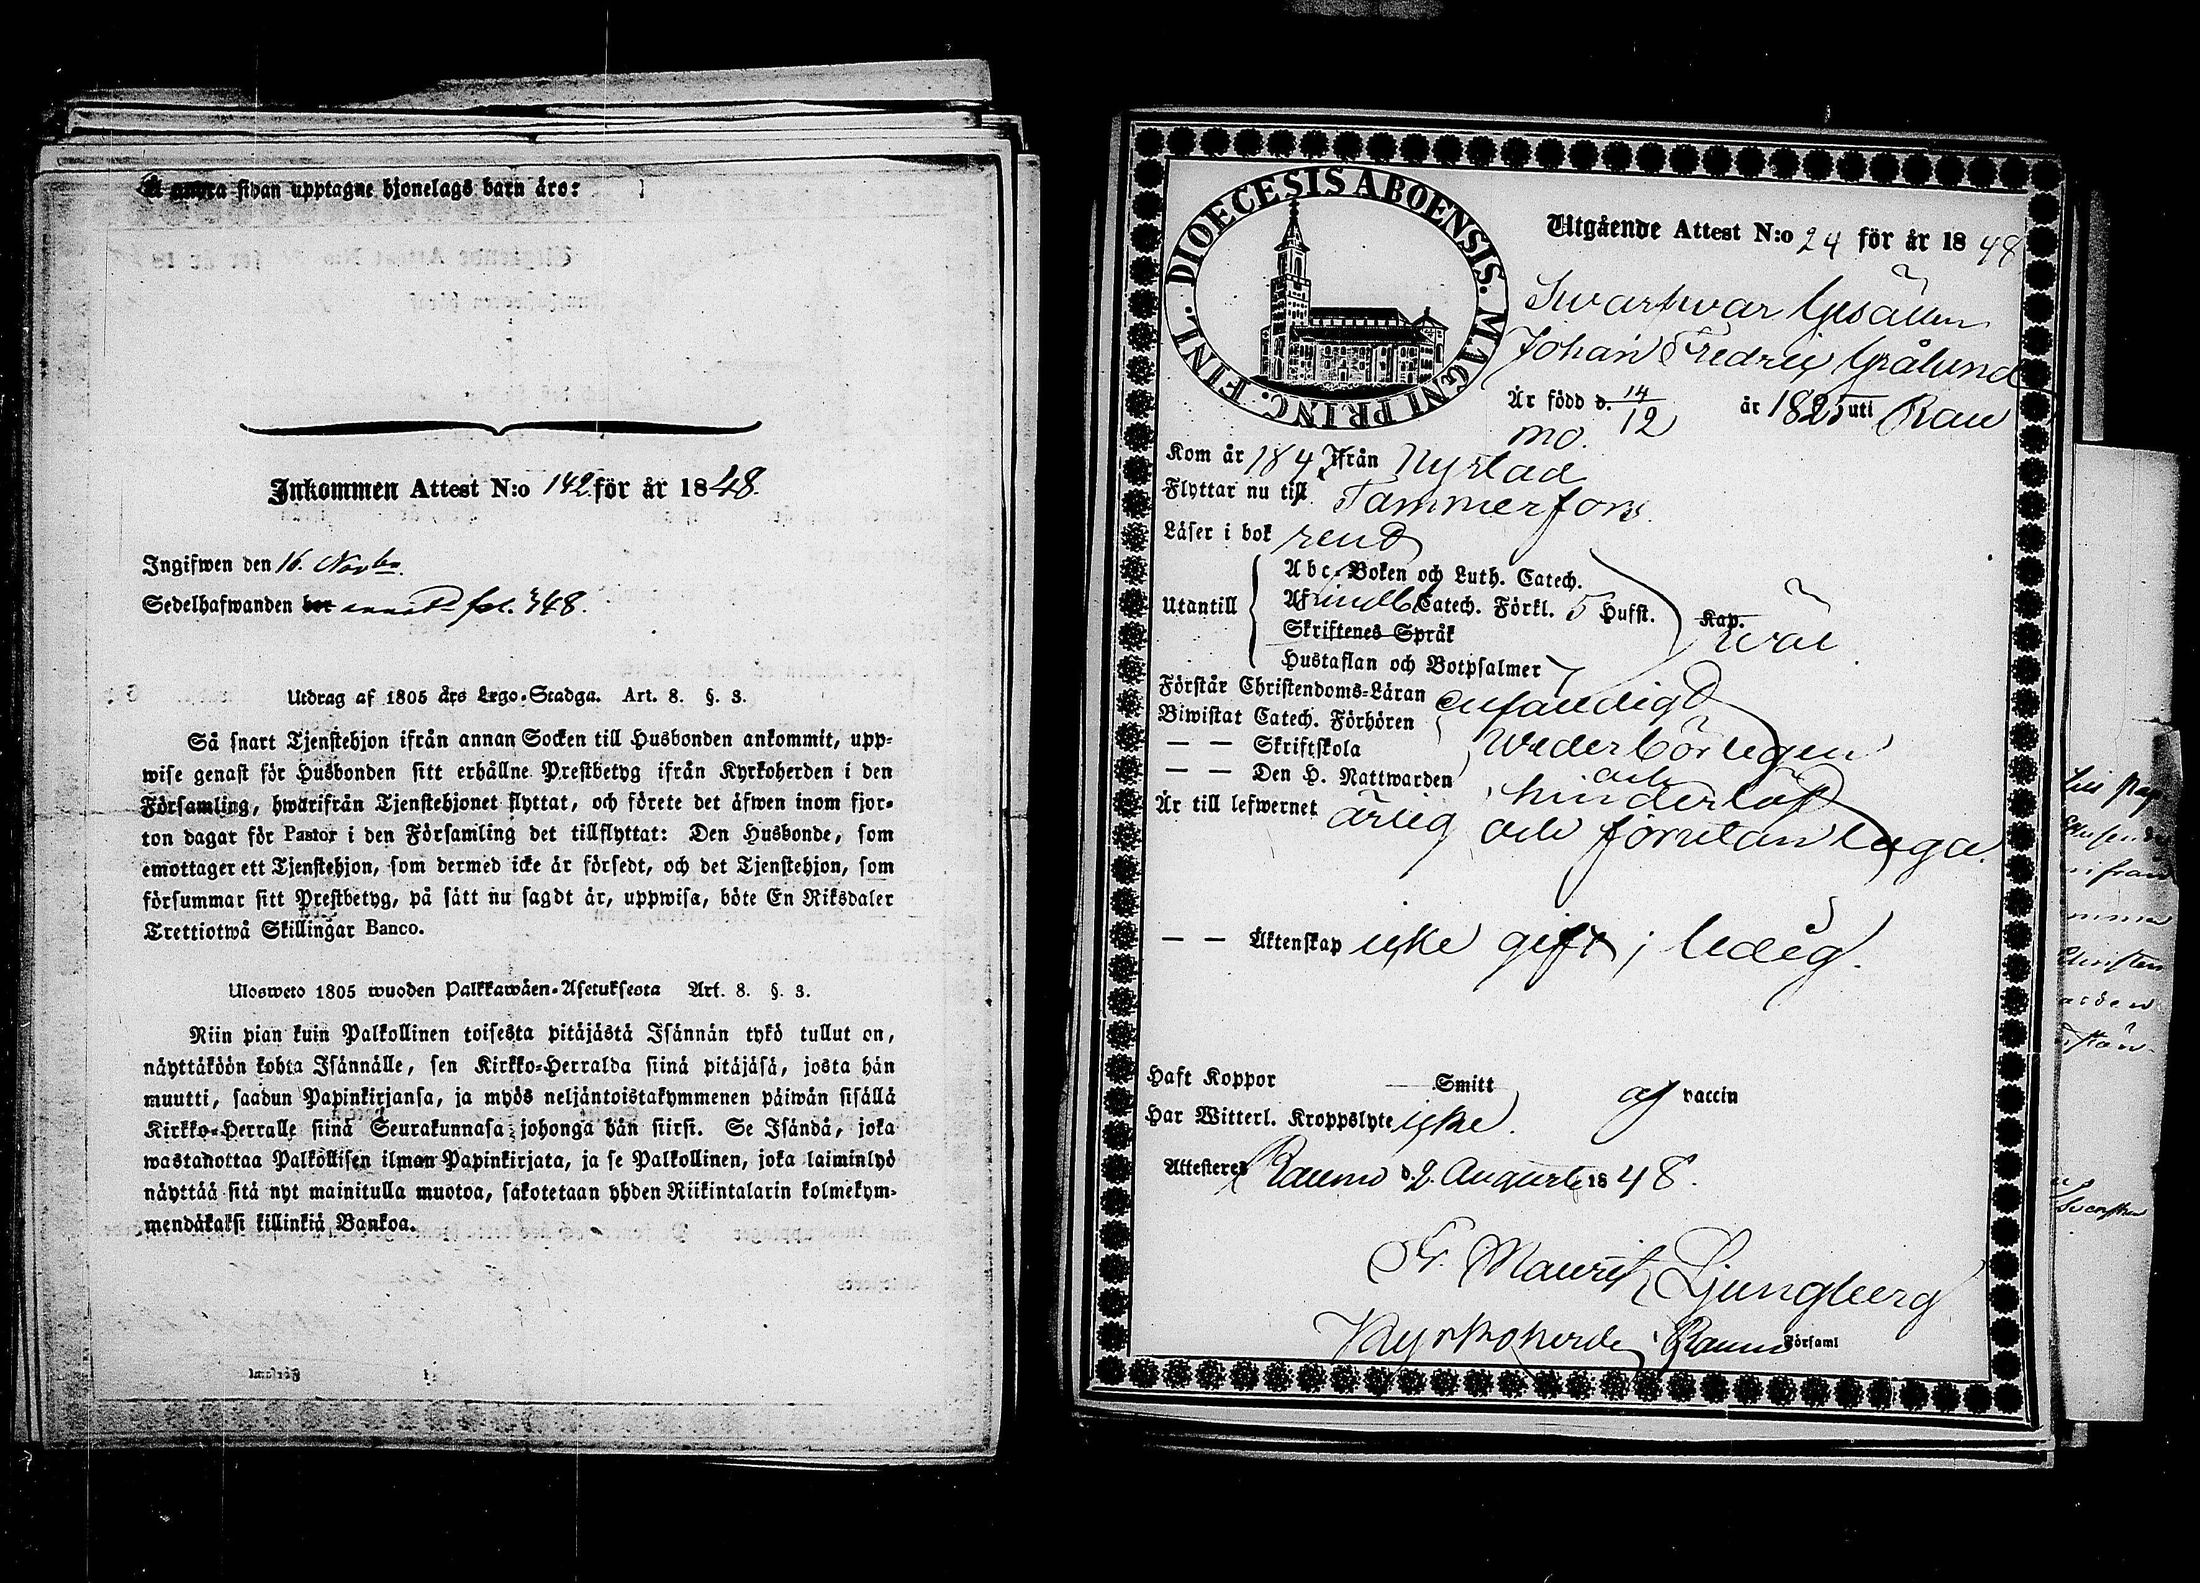 å andra sidan upptagne hjonelags barn äro:
Inkommen Attest N:o 142 för år 1848.
Ingifwen den 16. Novbr.
Sedelhafwanden bor annot fol. 348.
Utdrag af 1805 års Lego-Stadga. Art. 8. §. 3.
Så snart Tjenstehjon ifrån annan Socken till Husbonden ankommit, upp-
wise genast för Husbonden sitt erhållne Prestbetyg ifrån Kyrkoherden i den
Församling, hwarifrån Tjenstehjonet flyttat, och förete det äfwen inom fjor-
ton dagar för Pastor i den Församling det tillflyttat: Den Husbonde, som
emottager ett Tjenstehjon, som dermed icke är försedt, och det Tjenstehjon, som
försummar sitt Prestbetyg, på sätt nu sagdt är, uppwisa, böte En Riksdaler
Trettiotwå Skillingar Banco.
Ulosweto 1805 wuoden Palkkawäen-Asetuksesta Art. 8. §. 3.
Niin pian kuin Palkollinen toisesta pitäjästä Isännän tykö tullut on,
näyttäköön kohta Isännälle, sen Kirkko-Herralda siinä pitäjäsä, josta hän
muutti, saadun Papinkirjansa, ja myös neljäntoistakymmenen päiwän sisällä
Kirkko-Herralle siinä Seurakunnasa johonga hän siirsi. Se Isändä, joka
wastanottaa Palkollisen ilman Papinkirjata, ja se Palkollinen, joka laiminlyö
näyttää sitä nyt mainitulla muotoa, sakotetaan yhden Riikintalarin kolmekym-
mendäkaksi killinkiä Bankoa.
DIOECESIS ABOENSIS. MAGNI PRINC. FINL.
Utgående Attest N:o 24 för år 1848
Swarfwar Gesällen
Johan Fredric Grålund
Är född d. 14/12 år 1825 uti Rau
mo.
Kom år 1847 ifrån Nystad
Flyttar nu till Tammerfors.
Läser i bok rent
Utantill
Abc-Boken och Luth. Catech.
Af Lindbl. Catech. Förkl. 5 Hufst. Kap. wäl
Skriftenes Språk
Hustaflan och Botpsalmer
Förstår Christendoms-Läran enfaldigt
Biwistat Catech. Förhören
— — Skriftskola wederbörligen
— — Den H. Nattwarden och
Är till lefwernet ärlig hinderlöst
och förutan laga.
— — Äktenskap icke gift; ledig.
Haft Koppor Smitt af vaccin
Har Witterl. Kroppslyte icke.
Attesterer Raumo d. 2. Augusti 1848.
Fr. Maurit. Ljungberg
Kyrkoherde i Raumo Församl